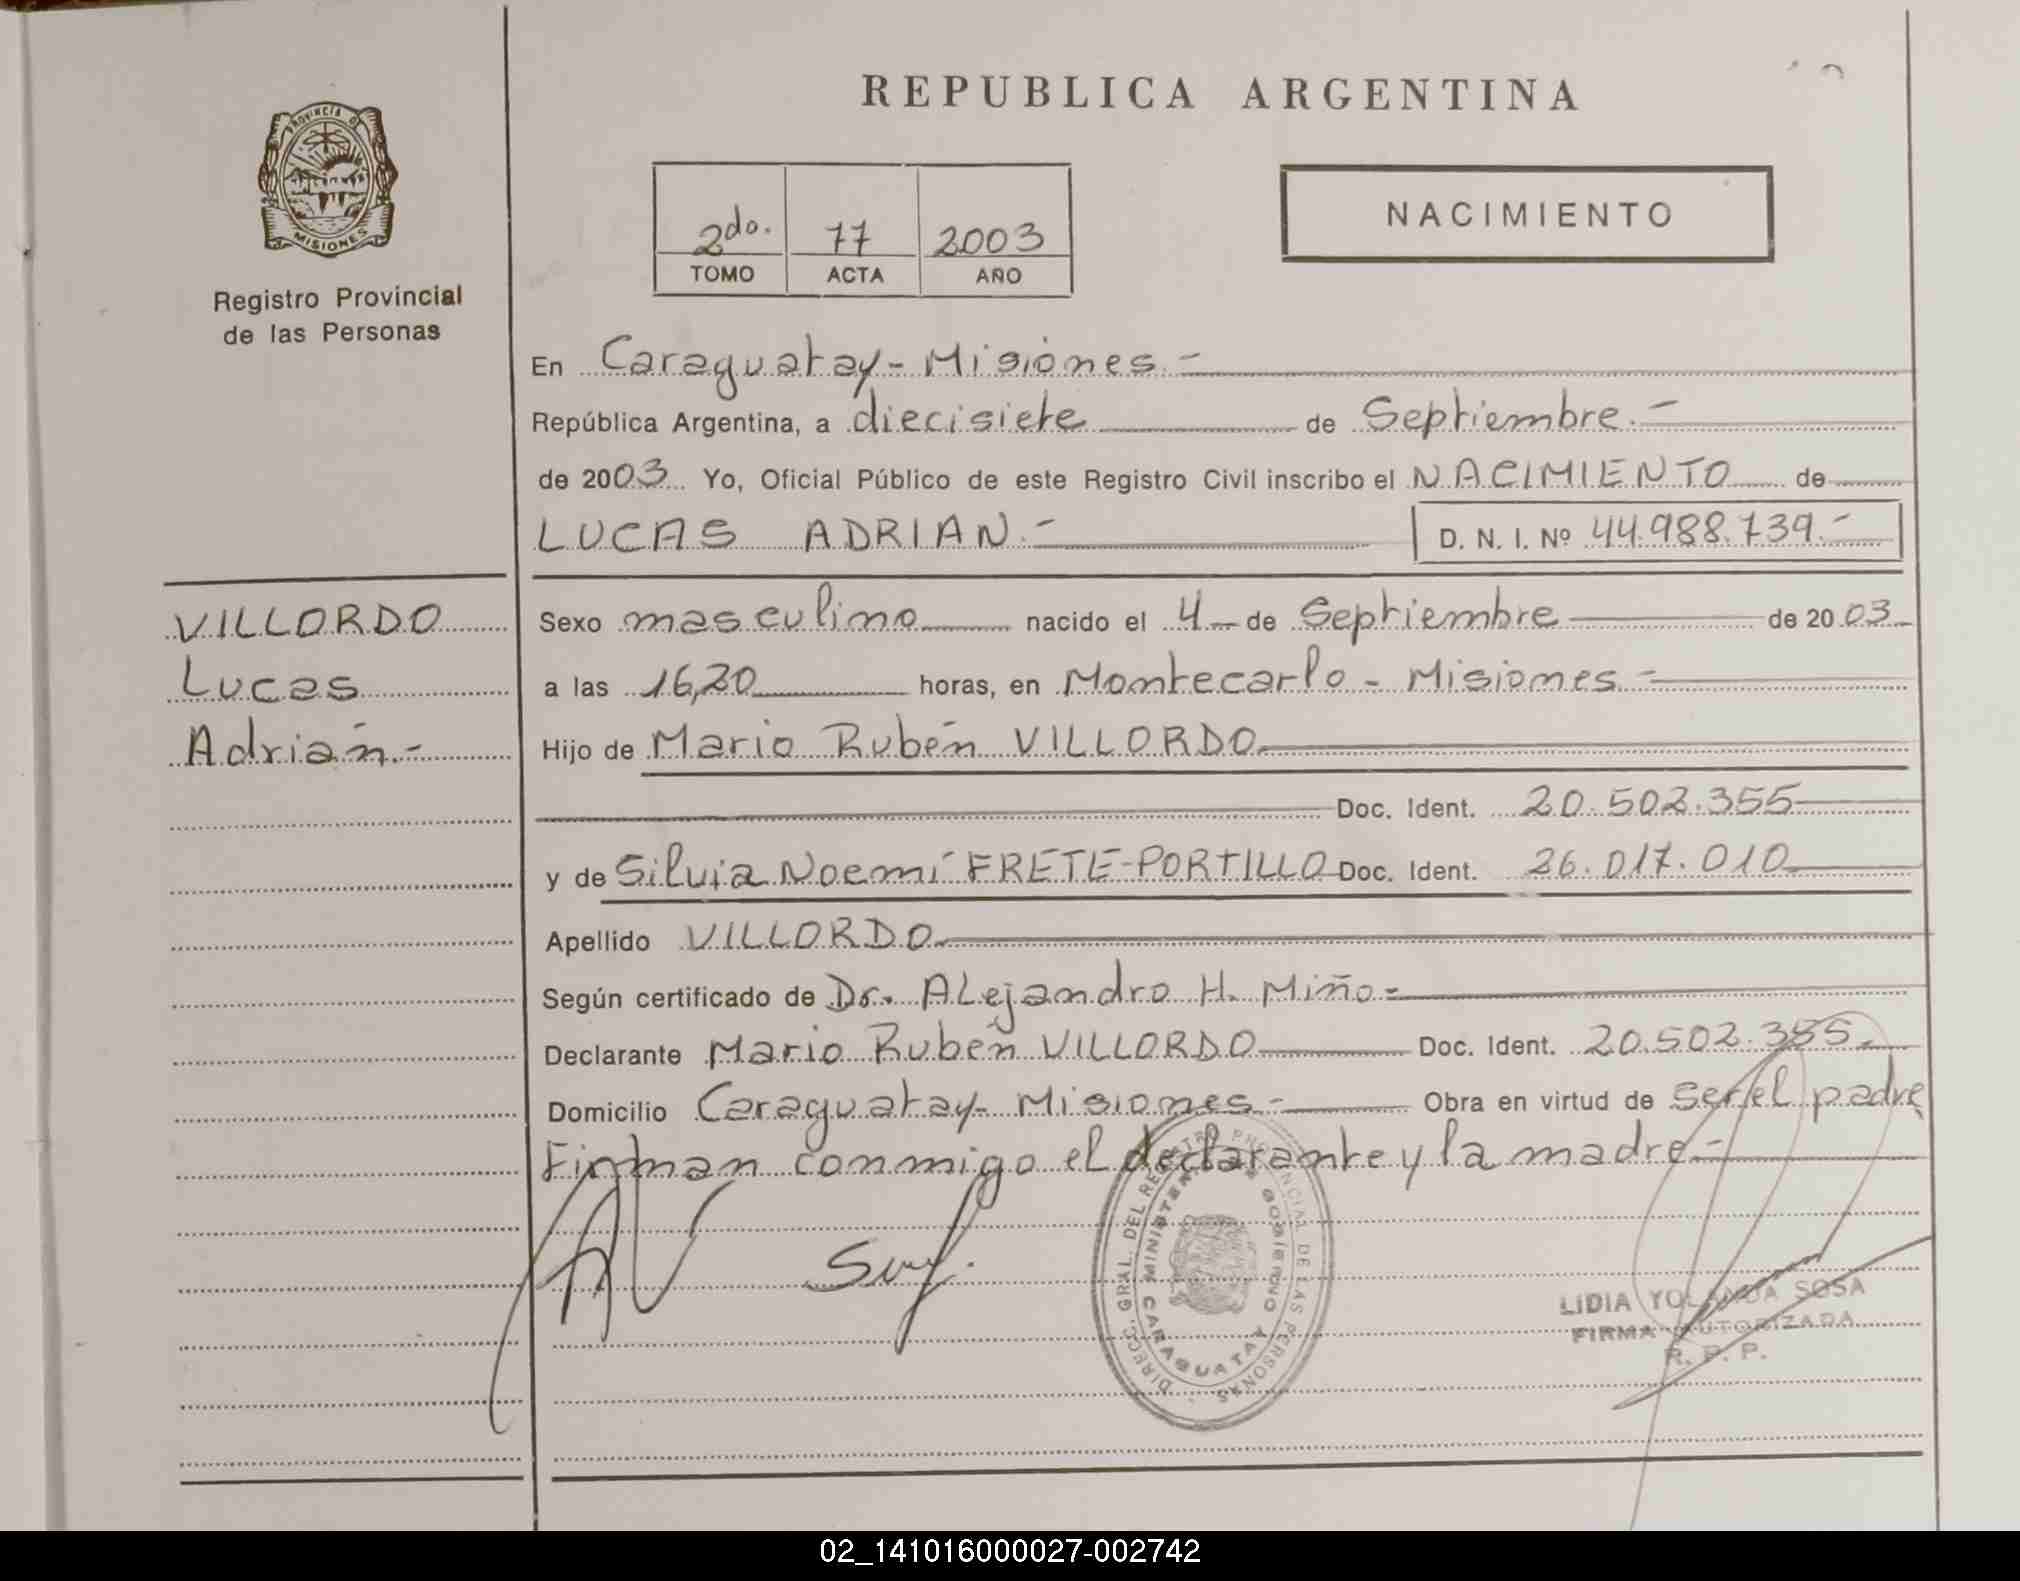 REPUBLICA ARGENTINA
PROVINCIA DE
MISIONES
Registro Provincial
de las Personas
2do. 77 2003
TOMO ACTA AÑO
NACIMIENTO
En Caraguatay - Misiones.-
República Argentina, a diecisiete de Septiembre.-
de 2003 Yo, Oficial Público de este Registro Civil inscribo el NACIMIENTO de
LUCAS ADRIAN.- D. N. I. Nº 44.988.739.-
VILLORDO
Lucas
Adrián.-
Sexo masculino nacido el 4 de Septiembre de 2003
a las 16,20 horas, en Montecarlo - Misiones.-
Hijo de Mario Rubén VILLORDO
Doc. Ident. 20.502.355
y de Silvia Noemí FRETE-PORTILLO Doc. Ident. 26.017.010
Apellido VILLORDO
Según certificado de Dr. ALejandro H. Miño.-
Declarante Mario Rubén VILLORDO Doc. Ident. 20.502.355.
Domicilio Caraguatay - Misiones.- Obra en virtud de ser el padre
Firman conmigo el declarante y la madre.-
DIRECC. GRAL. DEL REGISTRO PROVINCIAL DE LAS PERSONAS
MINISTERIO DE GOBIERNO
CARAGUATAY
LIDIA YOLANDA SOSA
FIRMA AUTORIZADA
R. P. P.
02_141016000027-002742